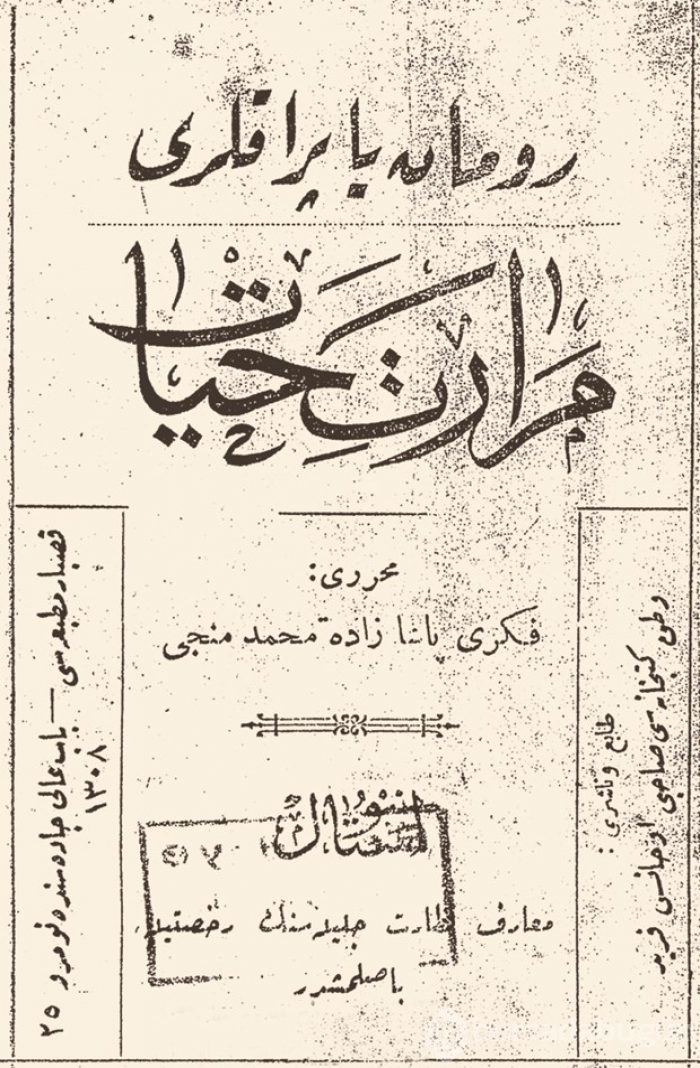 رومان یاپراقلری
مرارت حیات
محرری:
فکری پاشا زاده محمد منجی
استانبول
معارف نظارت جلیله سنك رخصتیله
باصلمشدر
طابع و ناشری :
وطن کتبخانه سی صاحبی اوحانس فرید
قصبار مطبعه سی — باب عالی جاده سنده نومرو ۲۵
۱۳۰۸